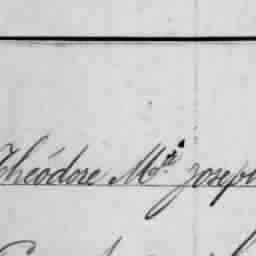 Théodore M^de Joseph